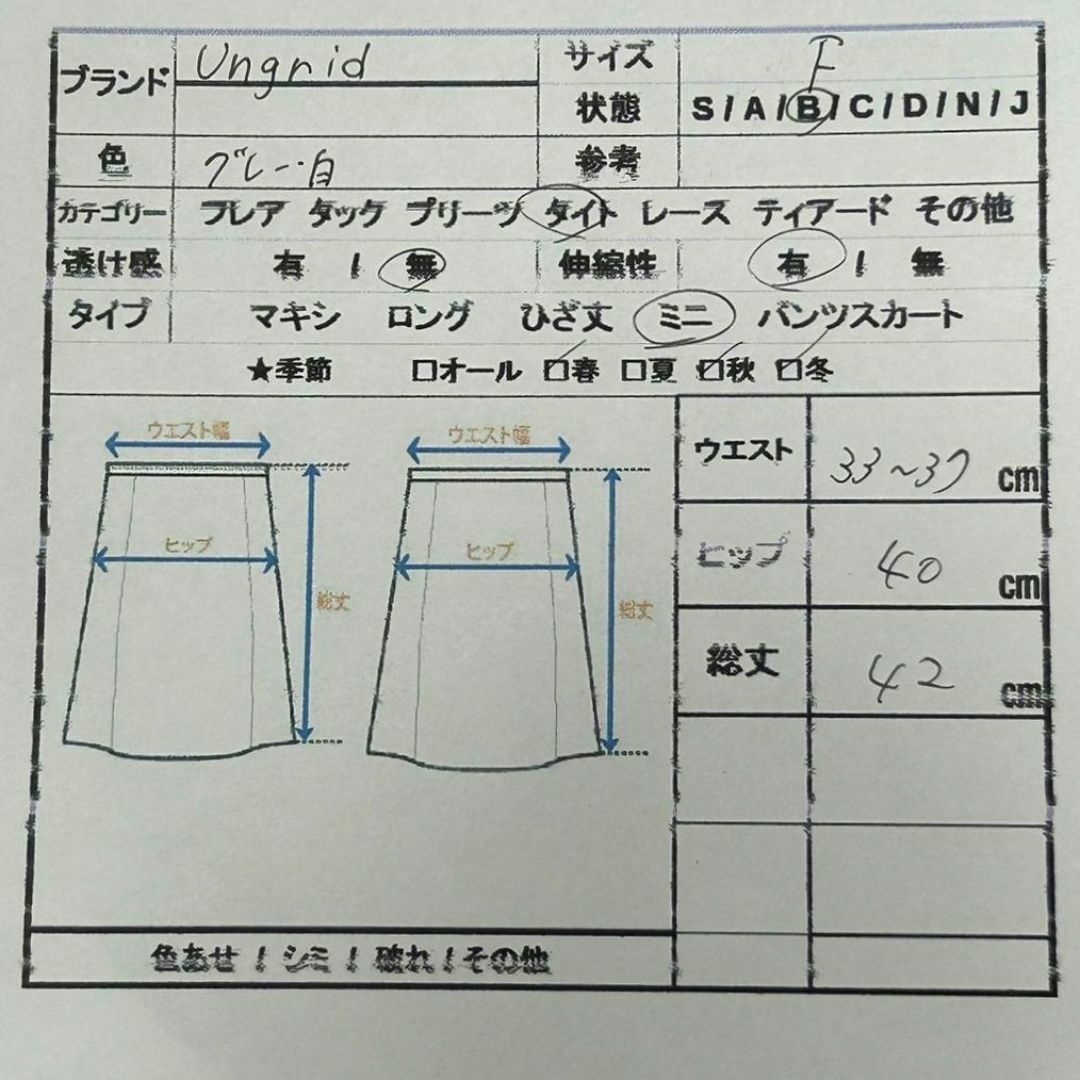 ブランド Ungrid サイズ F
状態 S / A / B / C / D / N / J
色 グレー・白 参考
カテゴリー フレア タック プリーツ タイト レース ティアード その他
透け感 有 / 無 伸縮性 有 / 無
タイプ マキシ ロング ひざ丈 ミニ パンツスカート
★季節 □オール ☑春 □夏 ☑秋 ☑冬
ウエスト幅 ウエスト幅 ウエスト 33～37 cm
ヒップ ヒップ ヒップ 40 cm
総丈 総丈 総丈 42 cm
色あせ / シミ / 破れ / その他